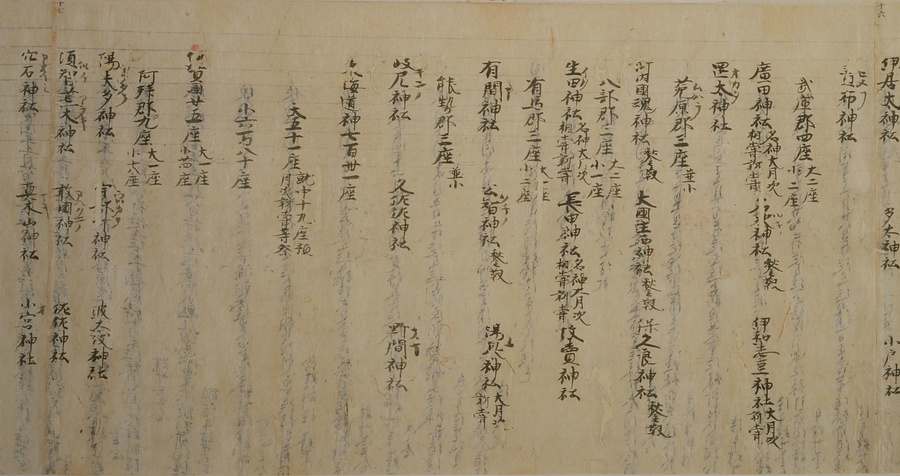 伊居太神社 多太神社 小戸神社
布神社
武庫郡四座 大二座 小二座
廣田神社 名神大月次相嘗新嘗 名次神社 鍬靫 伊和志豆神社 大月次新嘗
岡太神社
菟原郡三座 並小
河内國魂神社 鍬靫 大國主西神社 鍬靫 保久良神社 鍬靫
八部郡三座 大二座 小一座
生田神社 名神大月次相嘗新嘗 長田神社 名神大月次相嘗新嘗 汶賣神社
有馬郡三座 大一座 小二座
有間神社 公智神社 鍬靫 湯泉神社 大月次新嘗
能勢郡三座 並小
岐尼神社 久佐佐神社 野間神社
東海道神七百卅一座
大五十二座 就中十九座預月次新嘗等祭
小六百八十座
伊賀國廿五座 大一座 小廿四座
阿拜郡九座 大一座 小八座
陽夫多神社 宇都可神社 波太伎神社
須智荒木神社 敢國神社 佐佐神社
穴石神社 真木山神社 小宮神社